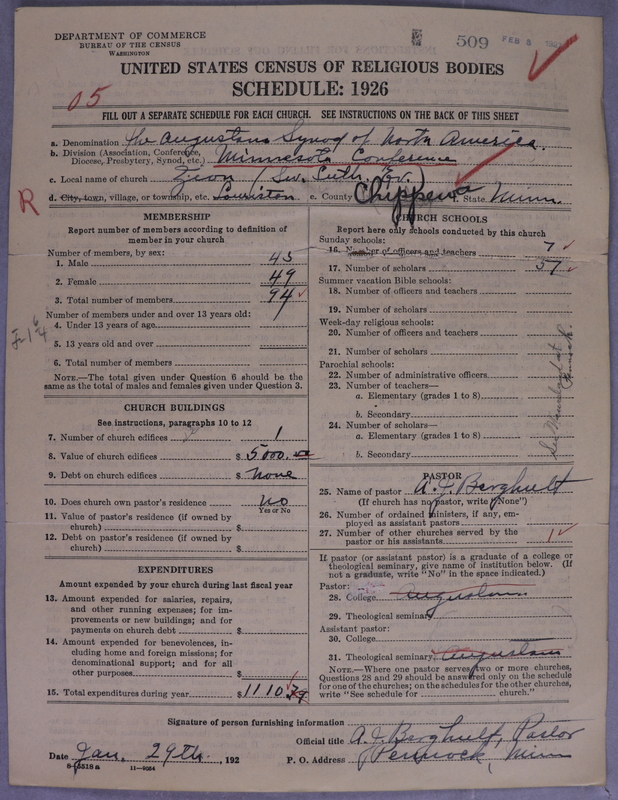 DEPARTMENT OF COMMERCE
BUREAU OF THE CENSUS
WASHINGTON
509 FEB 8
UNITED STATES CENSUS OF RELIGIOUS BODIES
SCHEDULE: 1926
05
FILL OUT A SEPARATE SCHEDULE FOR EACH CHURCH. SEE INSTRUCTIONS ON THE BACK OF THIS SHEET
a. Denomination The Augustana Synod of North America.
b. Division (Association, Conference, Diocese, Presbytery, Synod, etc.) Minnesota Conference
c. Local name of church Zion (Sw. Luth. Ev.)
R
d. City, town, village, or township, etc. e. County Chippewa f. State Minn.
MEMBERSHIP
Report number of members according to definition of
member in your church
Number of members, by sex:
1. Male 45
2. Female 49
3. Total number of members 94
Number of members under and over 13 years old:
4. Under 13 years of age
5. 13 years old and over
6. Total number of members
NOTE.—The total given under Question 6 should be the
same as the total of males and females given under Question 3.
CHURCH BUILDINGS
See instructions, paragraphs 10 to 12
7. Number of church edifices 1
8. Value of church edifices $ 5000.00
9. Debt on church edifices $ None
10. Does church own pastor's residence No
Yes or No
11. Value of pastor's residence (if owned by
church) $
12. Debt on pastor's residence (if owned by
church) $
EXPENDITURES
Amount expended by your church during last fiscal year
13. Amount expended for salaries, repairs,
and other running expenses; for im-
provements or new buildings; and for
payments on church debt $
14. Amount expended for benevolences, in-
cluding home and foreign missions; for
denominational support; and for all
other purposes $
15. Total expenditures during year $ 1110
CHURCH SCHOOLS
Report here only schools conducted by this church
Sunday schools:
16. Number of officers and teachers 7
17. Number of scholars 57
Summer vacation Bible schools:
18. Number of officers and teachers
19. Number of scholars
Week-day religious schools:
20. Number of officers and teachers
21. Number of scholars
Parochial schools:
22. Number of administrative officers
23. Number of teachers—
a. Elementary (grades 1 to 8)
b. Secondary
24. Number of scholars—
a. Elementary (grades 1 to 8)
b. Secondary
PASTOR
25. Name of pastor A. J. Berghult
(If church has no pastor, write "None")
26. Number of ordained ministers, if any, em-
ployed as assistant pastors
27. Number of other churches served by the
pastor or his assistants 1
If pastor (or assistant pastor) is a graduate of a college or
theological seminary, give name of institution below. (If
not a graduate, write "No" in the space indicated.)
Pastor:
28. College Augustana
29. Theological seminary
Assistant pastor:
30. College
31. Theological seminary Augustana
NOTE.—Where one pastor serves two or more churches,
Questions 28 and 29 should be answered only on the schedule
for one of the churches; on the schedules for the other churches,
write "See schedule for church."
Signature of person furnishing information
Official title A. J. Berghult, Pastor
Date Jan. 29th, 192 P. O. Address Pennock, Minn
8-5518a 11—9054